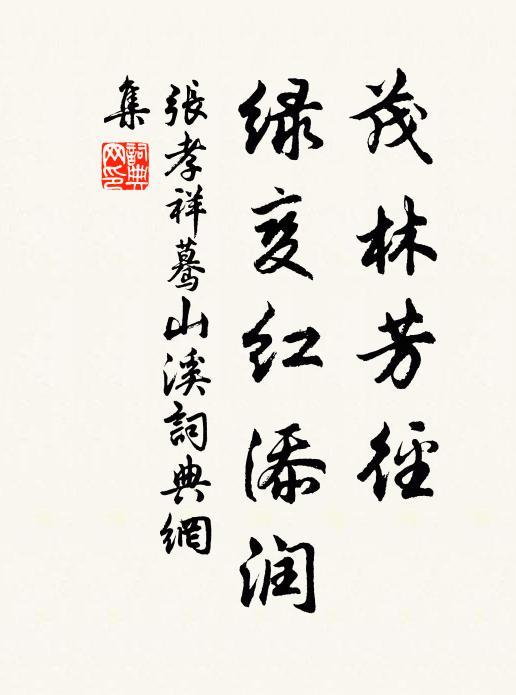 茂林芳徑
绿变红添润
張孝祥蓦山溪詞典網
集
詞典网印